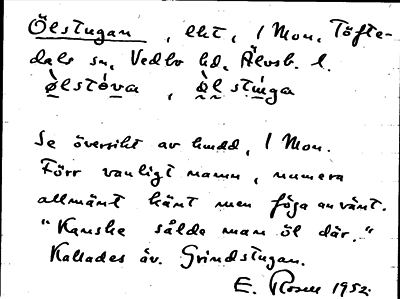 Ölstugan, lht, 1 Mon. Töfte-
dals sn, Vedbo hd. Älvsb. l.
ø̀lstóva, ø̀l stúga
Se översikt av hmdd, 1 Mon.
Förr vanligt namn, numera
allmänt känt men föga använt.
"Kanske sålde man öl där."
Kallades äv. Grindstugan.
E. Rosell 1952.